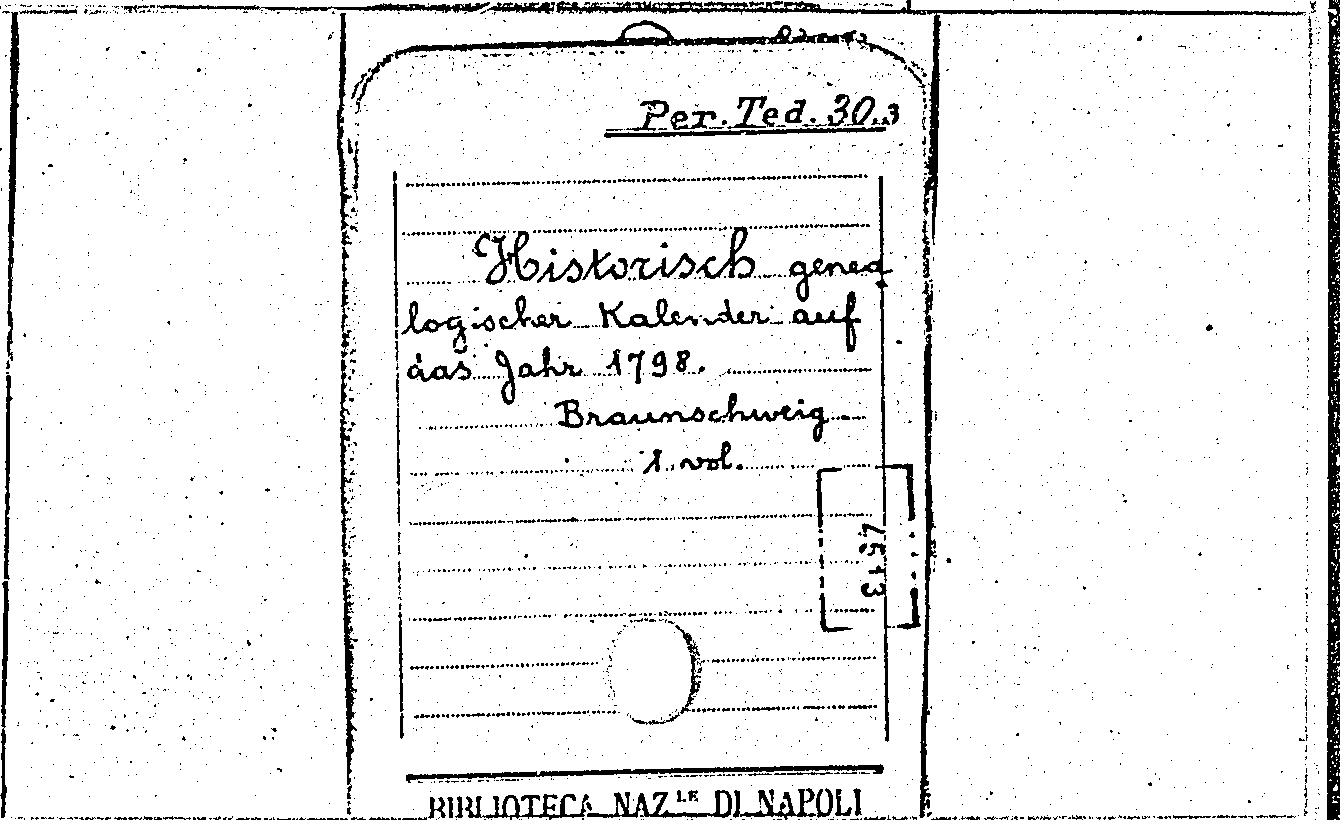 Per. Ted. 30.3
Historisch genea
logischer Kalender auf
das Jahr 1798.
Braunschweig
1 vol.
4513
BIBLIOTECA NAZ.LE DI NAPOLI